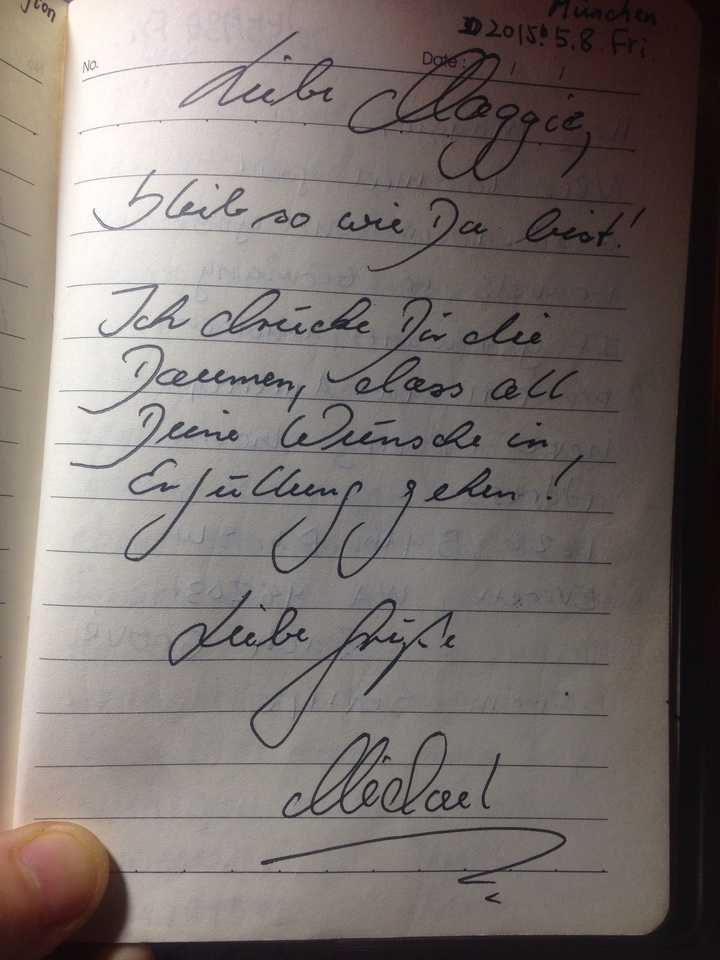 München
2015.5.8 Fri.
No.
Date :
Liebe Maggie,
bleib so wie Du bist!
Ich drücke Dir die
Daumen, dass all
Deine Wünsche in
Erfüllung gehen!
Liebe Grüße
Michael